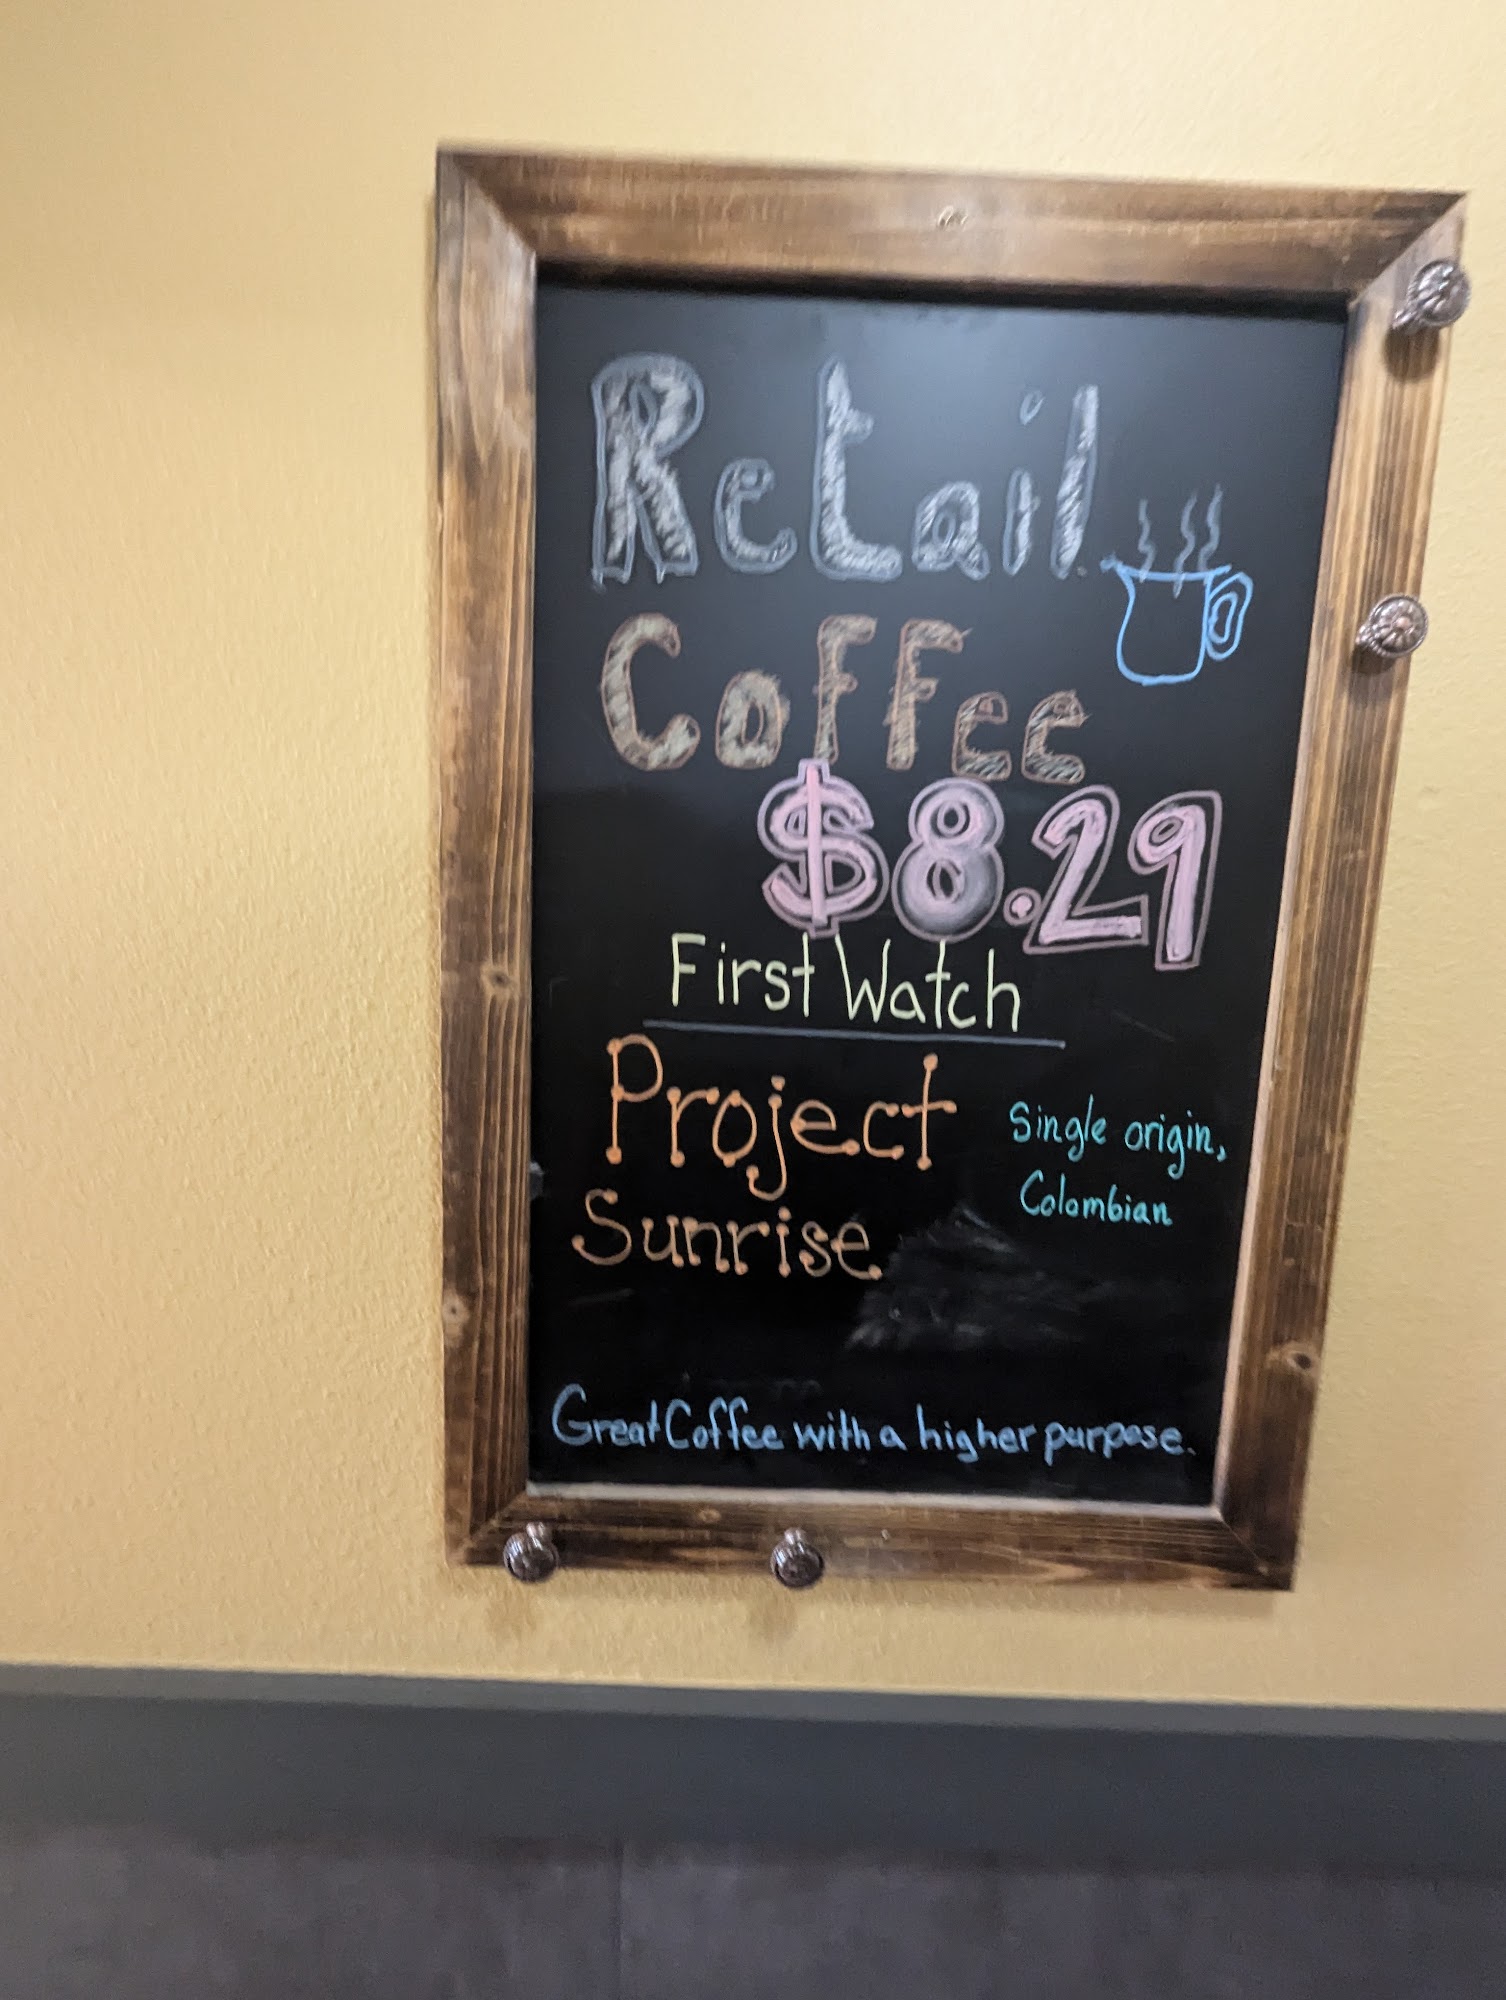 Retail
Coffee
$8.29
First Watch
Project
Sunrise
Single origin,
Colombian
Great Coffee with a higher purpose.